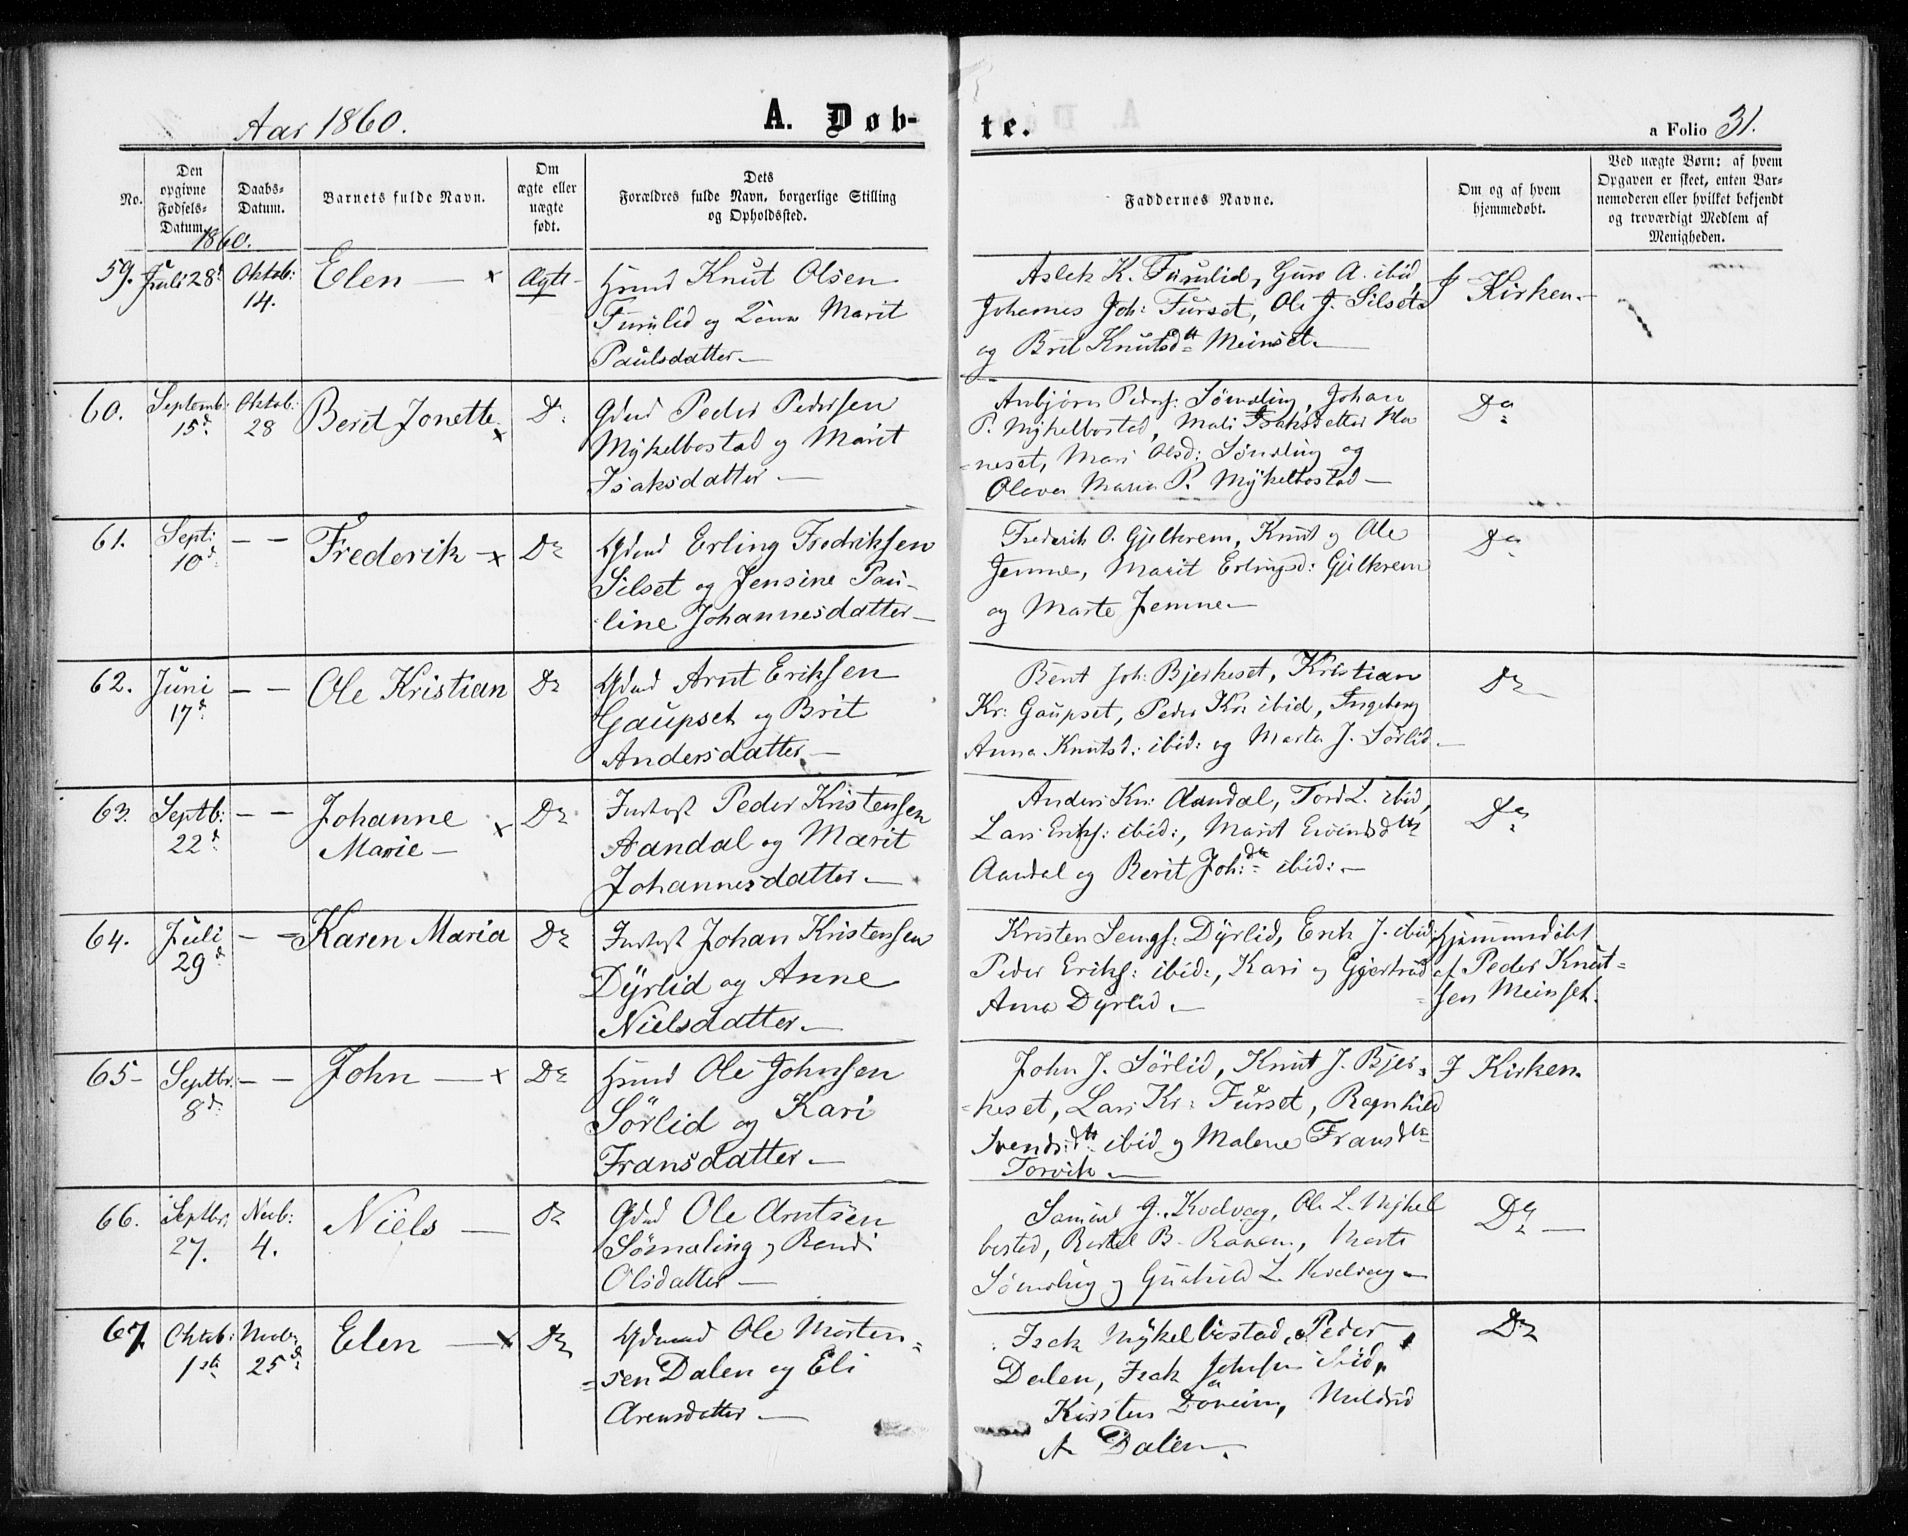 Aar 1860.
A. Døb-
te.
a Folio 31.
No.
Den opgivne Fødsels-Datum.
Daabs-Datum.
Barnets fulde Navn.
Om ægte eller uægte født.
Dets Forældres fulde Navn, borgerlige Stilling og Opholdsted.
Faddernes Navne.
Om og af hvem hjemmedøbt.
Ved uægte Børn; af hvem Opgaven er skeet, enten Barnemoderen eller hvilket bekjendt og troværdigt Medlem af Menigheden.
1860.
59. Juli 28d Oktob: 14. Elen — x Ægte
Hmd Knut Olsen
Furulid og Kone Marit
Paulsdatter —
Aslek K. Furulid, Guro A. ibid,
Johannes Joh: Furset, Ole J. Silset
og Brit Knutsdtt Meinset. —
I Kirken. —
60. Septemb: 15d Oktob: 28 Berit Jonette x D:
Gdmd Peder Pedersen
Mykelbostad og Marit
Isaksdatter —
Anbjørn Peders: Sømeling, Johan
P. Mykelbostad, Mali Isaksdatter Ha
=neset, Mari Olsd: Sømeling og
Olava Maria P. Mykelbostad —
Do
61. Sept: 10d — — Frederik — x Do
Gdmd Erling Fredriksen
Silset og Jensine Pau-
line Johannesdatter —
Frederik O. Gjelkrem, Knut og Ole
Jemne, Marit Erlingsd: Gjelkrem
og Marte Jemne —
Do
62. Juni 17d — — Ole Kristian Do
Gdmd Arnt Eriksen
Gaupset og Brit
Andersdatter —
Bent Joh: Bjerkeset, Kristian
Kr: Gaupset, Peder Kr: ibid, Ingeborg
Anna Knutsd: ibid: og Marta J. Sørlid —
Do
63. Septb: 22d — — Johanne Marie — x Do
Inderst Peder Kristensen
Aandal og Marit
Johannesdatter —
Anders Kn: Aandal, Tord L. ibid,
Lars Eriks: ibid:, Marit Eivindsdtr
Aandal og Berit Joh:dtr ibid: —
Do
64. Juli 29d — — Karen Maria Do
Inderst Johan Kristensen
Dyrlid og Anne
Nielsdatter —
Kristen Dyrlid, Erik J. ibid
Peder Eriks: ibid:, Kari og Gjertrud
Anna Dyrlid. —
Hjemmedøbt
af Peder Knut=
sen Meinset.
65 — Septbr: 8d — — John — x Do
Hmd Ole Johnsen
Sørlid og Kari
Fransdatter —
John J. Sørlid, Knut J. Bjer=
=keset, Lars Kr: Furset, Ragnhild
Svendsdtr ibid og Malene Fransdtr
Torvik —
I Kirken.
66. Septbr: 27. Novb: 4. Niels — Do
Gdmd Ole Arntsen
Sømeling og Randi
Olsdatter —
Samuel J. Kvelvaag, Ole L. Mykel
bostad, Bertel B. Ranem, Marte
Sømeling og Gunhild L. Kvelvaag —
Do —
67. Oktob: 1ste Novbr 25d Elen — x Do
Gdmd Ole Morten=
=sen Dalen og Eli
Arensdatter —
Isak Mykelbostad, Peder
Dalen, Isak Johnsen ibid,
Kirsten Døveim, Maldrid
A. Dalen.
Do